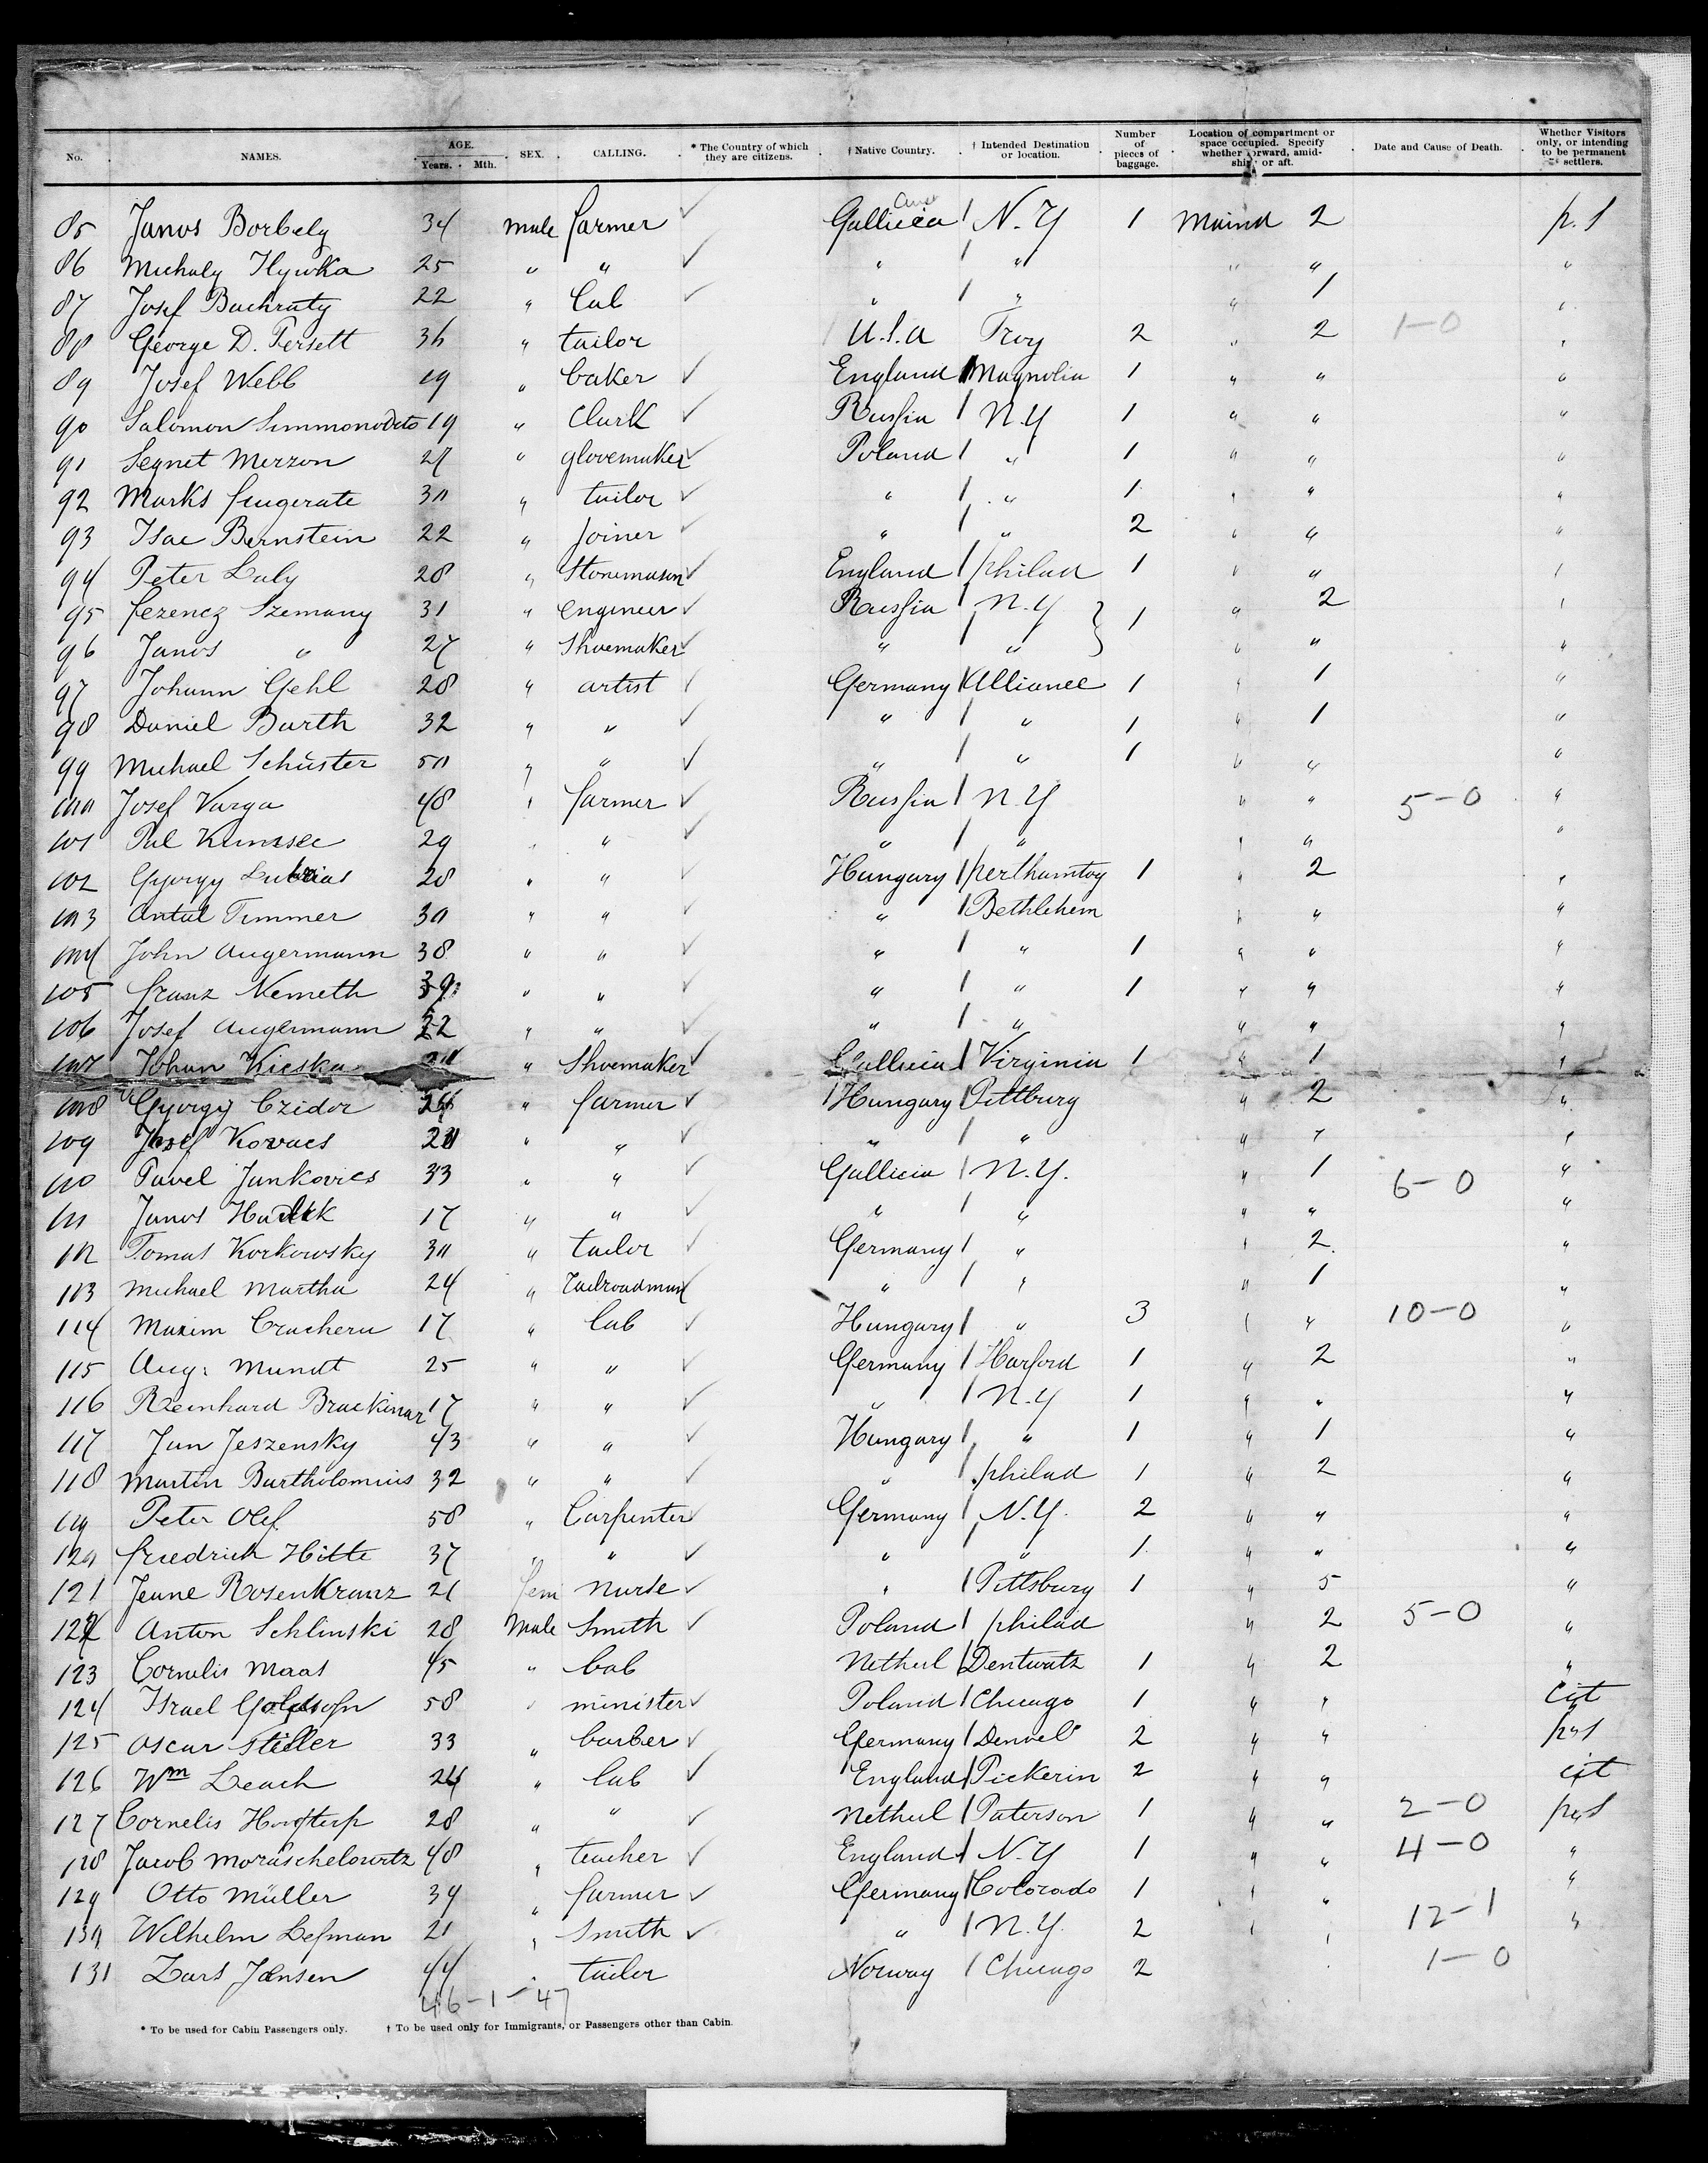 No. NAMES. AGE. Years. Mth. SEX. CALLING. * The Country of which they are citizens. † Native Country. † Intended Destination or location. Number of pieces of baggage. Location of compartment or space occupied. Specify whether forward, amidship, or aft. Date and Cause of Death. Whether Visitors only, or intending to be permanent settlers.
85 Janos Borbely 34 male farmer ✓ Gallicia / N.Y 1 Maind 2 p.s
86 Michaly Hywka 25 " " ✓ " / " " " "
87 Josef Bachraty 22 " Lab ✓ " / " " 1 "
88 George D. Persett 36 " tailor U.S.A Troy 2 " 2 1-0 "
89 Josef Webb 19 " baker ✓ England / Magnolia 1 " " "
90 Salomon 19 " Clark ✓ Russia / N.Y 1 " " "
91 Segnet Merzon 27 " glovemaker ✓ Poland / " 1 " " "
92 Marks 30 " tailor ✓ " / " 1 " " "
93 Isac Bernstein 22 " Joiner ✓ " / " 2 " " "
94 Peter Laly 28 " Stonemason ✓ England / philad 1 " " "
95 ferencz Szemany 31 " engineer ✓ Russia / N.Y } 1 " 2 "
96 Janos " 27 " Shoemaker ✓ " / " " " "
97 Johann Gehl 28 " artist ✓ Germany / Alliance 1 " 1 "
98 Daniel Barth 32 " " ✓ " / " 1 " 1 "
99 Michael Schuster 50 " " ✓ " / " 1 " " "
100 Josef Varga 48 " farmer ✓ Russia / N.Y " " 5-0 "
101 Pal 29 " " ✓ " / " " " "
102 Gyorgy 28 " " ✓ Hungary / perthamtoy 1 " 2 "
103 Antal Timmer 30 " " ✓ " / Bethlehem " " "
104 John Augermann 38 " " ✓ " / " 1 " " "
105 franz Nemeth 39 " " ✓ " / " 1 " " "
106 Josef Augermann 22 " " ✓ " / " " " "
107 Johan Kieska " Shoemaker ✓ Gallicia / Virginia 1 " 1 "
108 Gyorgy Czidor " farmer ✓ / Hungary Pittburg " 2 "
109 Josef Kovacs " " ✓ " / " " " "
110 Pavel Jankovics 33 " " ✓ Gallicia / N.Y. " 1 6-0 "
111 Janos 17 " " ✓ " / " " " "
112 Tomas Korkowsky 30 " tailor ✓ Germany / " " 2 "
113 Michael Martha 24 " railroadman ✓ " / " " 1 "
114 Maxim Cracheru 17 " Lab ✓ Hungary / " 3 " " 10-0 "
115 Aug: Mundt 25 " " ✓ Germany / Harford 1 " 2 "
116 Reinhard Brackinar 17 " " ✓ " / N.Y 1 " " "
117 Jan Jeszensky 43 " " ✓ Hungary / " 1 " 1 "
118 Martin Bartholomius 32 " " ✓ " / philad 1 " 2 "
119 Peter Olef 58 " Carpenter ✓ Germany / N.Y. 2 " " "
120 friedrich Hitte 37 " " ✓ " / " 1 " " "
121 Jeane Rosenkranz 21 fem nurse ✓ " / Pittsburg 1 " 5 "
122 Anton Schlinski 28 Male Smith ✓ Poland / philad " 2 5-0 "
123 Cornelis Maas 45 " Lab Netherl Dentwatz 1 " 2 "
124 Israel 58 " minister ✓ Poland / Chicago 1 " " cit
125 Oscar Stiller 33 " barber ✓ Germany / Denvel 2 " " p.s
126 Wm Leach 24 " Lab ✓ England / Pickerin 2 " " cit
127 Cornelis 28 " " ✓ Netherl / Paterson 1 " " 2-0 p.s
128 Jacob Moraschelowitz 48 " teacher ✓ England / N.Y 1 " " 4-0 "
129 Otto Müller 39 " farmer ✓ Germany / Colorado 1 " " "
130 Wilhelm Lesman 21 " Smith ✓ " / N.Y. 2 " " 12-1 "
131 Lars Jensen 44 " tailor Norway / Chicago 2 " 1-0
46-1-47
* To be used for Cabin Passengers only. † To be used only for Immigrants, or Passengers other than Cabin.